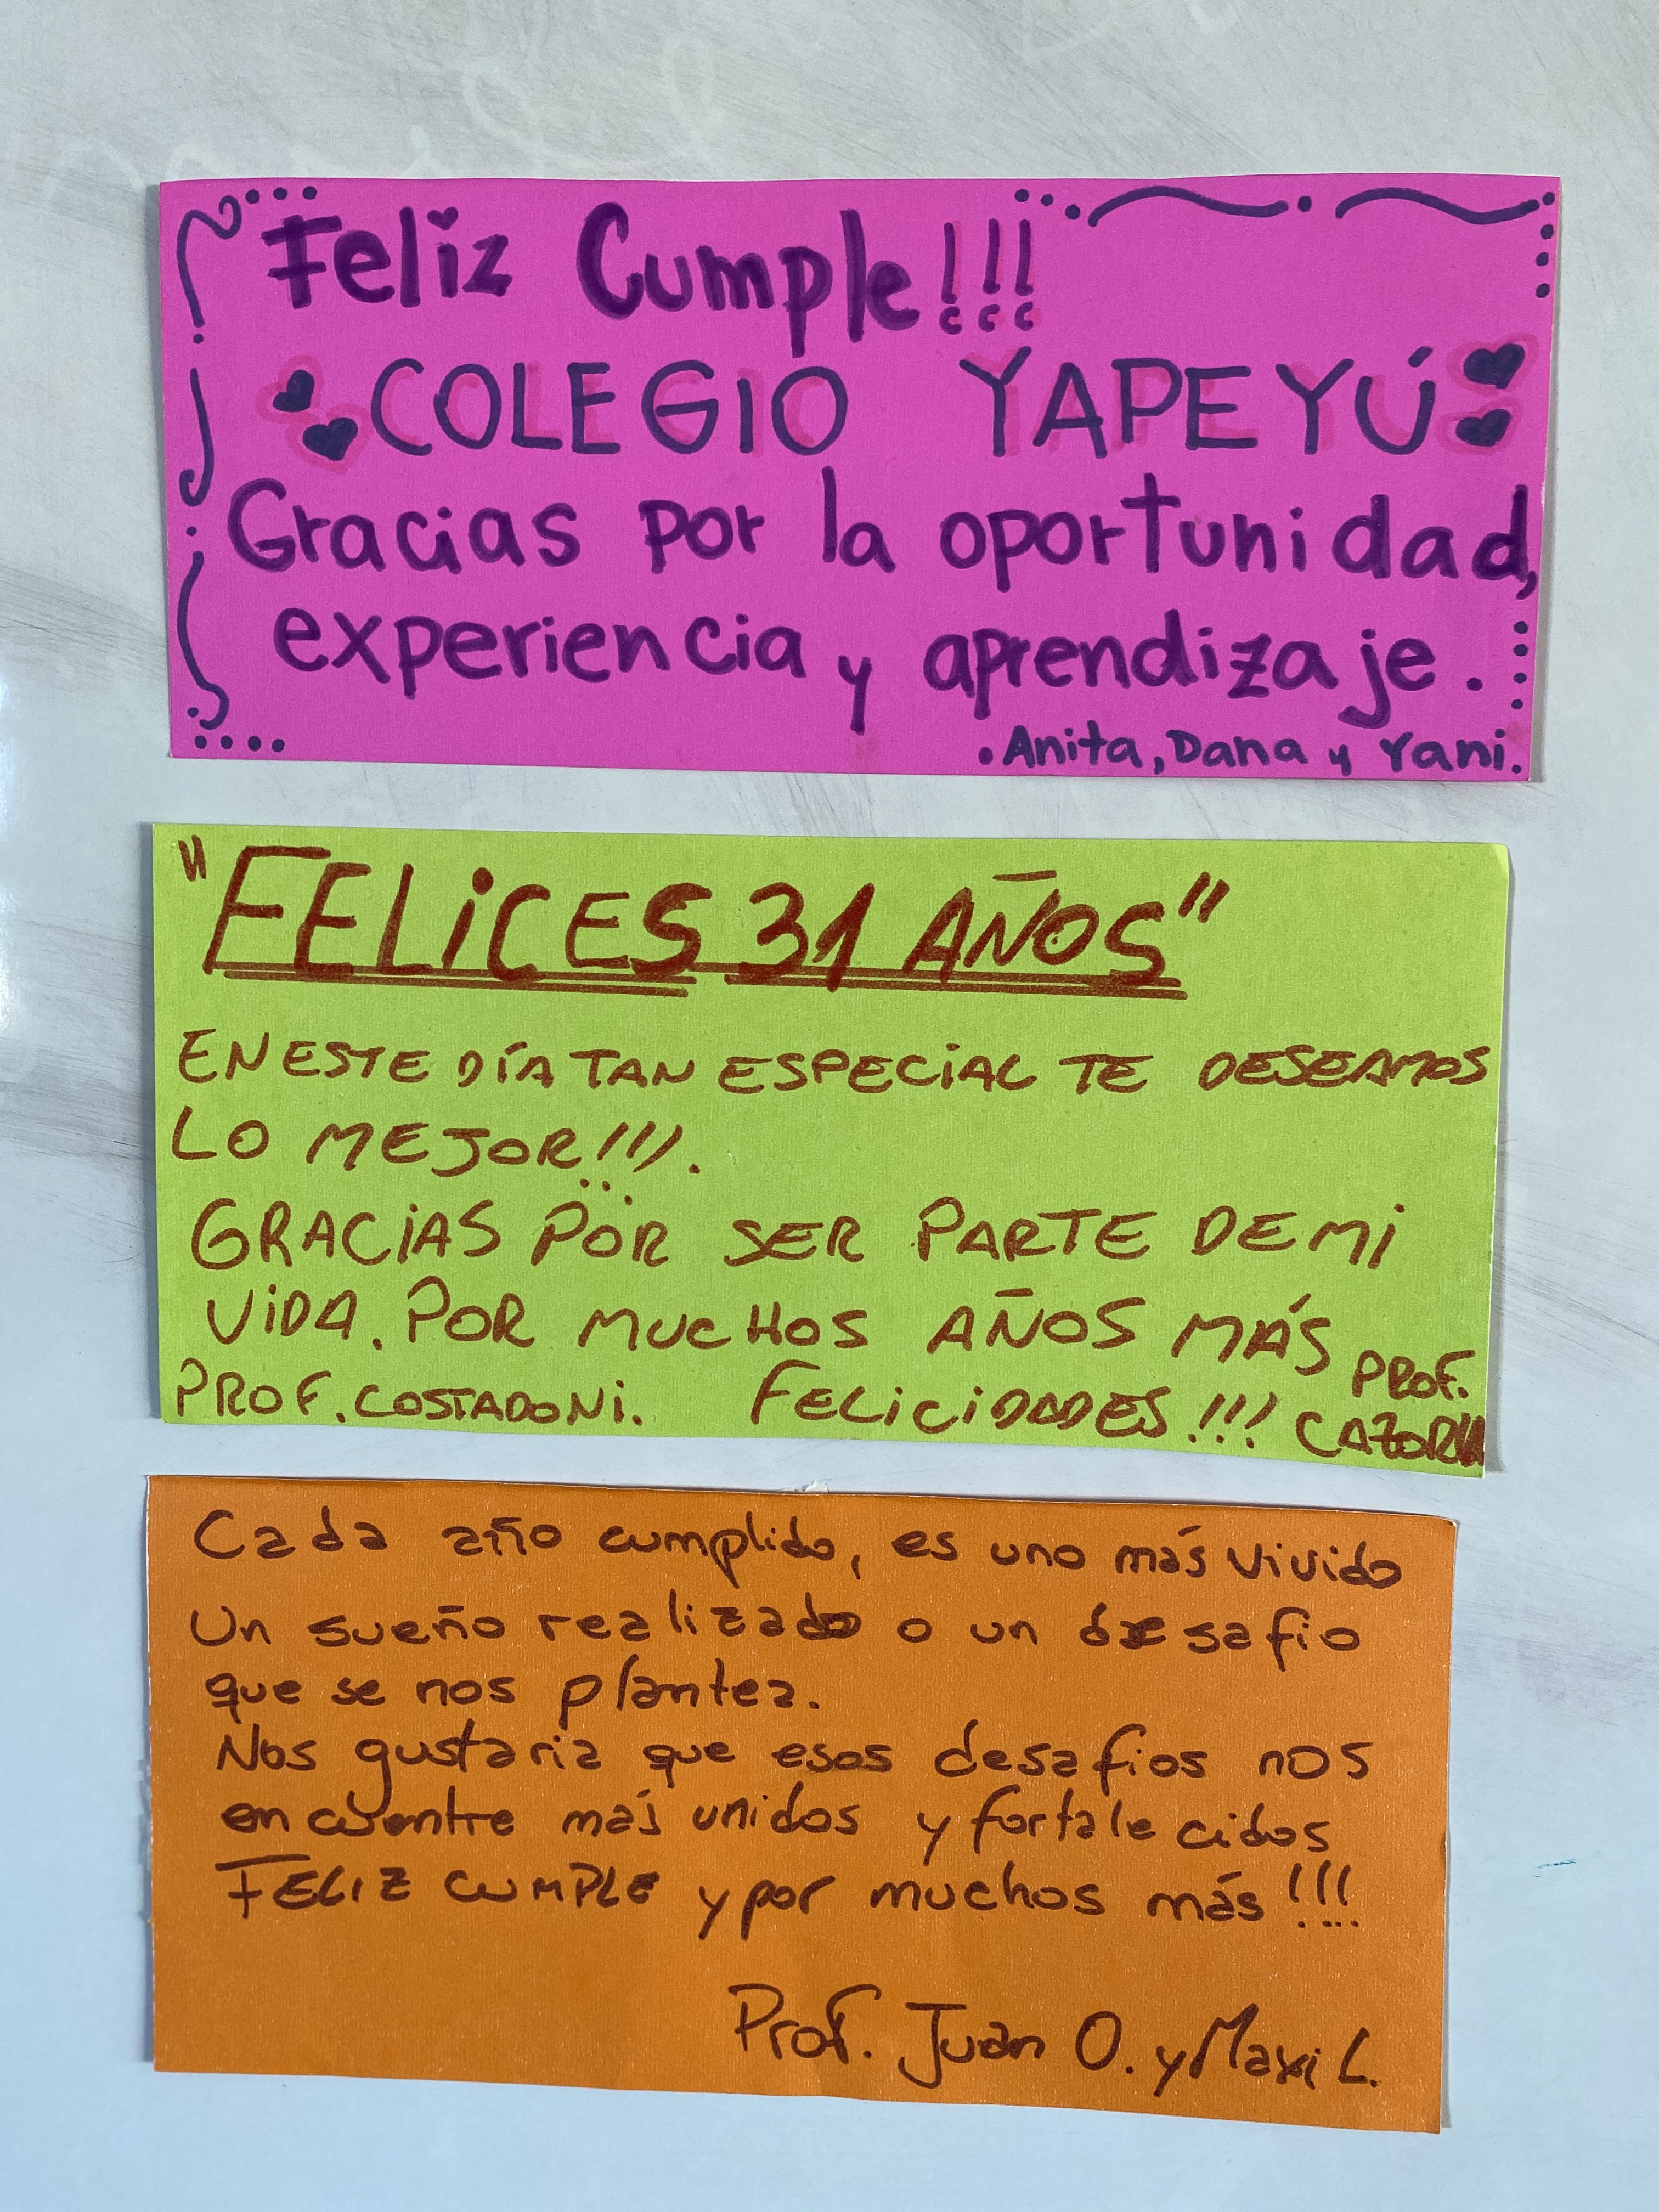 Feliz Cumple!!!
COLEGIO YAPEYÚ
Gracias por la oportunidad,
experiencia y aprendizaje.
.Anita, Dana y Yani.
"FELiCES 31 AÑOS"
EN ESTE DÍA TAN ESPECiAL TE DESEAMOS
LO MEJOR!!!.
GRACiAS POR SER PARTE DE Mi
ViDA. POR MUCHOS AÑOS MÁS
PROF. COSTADONi. FELiCiDADES!!! PROF.
CAZORLA
Cada año cumplido, es uno más vivido
Un sueño realizado o un desafio
que se nos plantea.
Nos gustaria que esos desafios nos
encuentre más unidos y fortalecidos
FELIZ CUMPLE y por muchos más!!!
Prof. Juan O. y Maxi L.